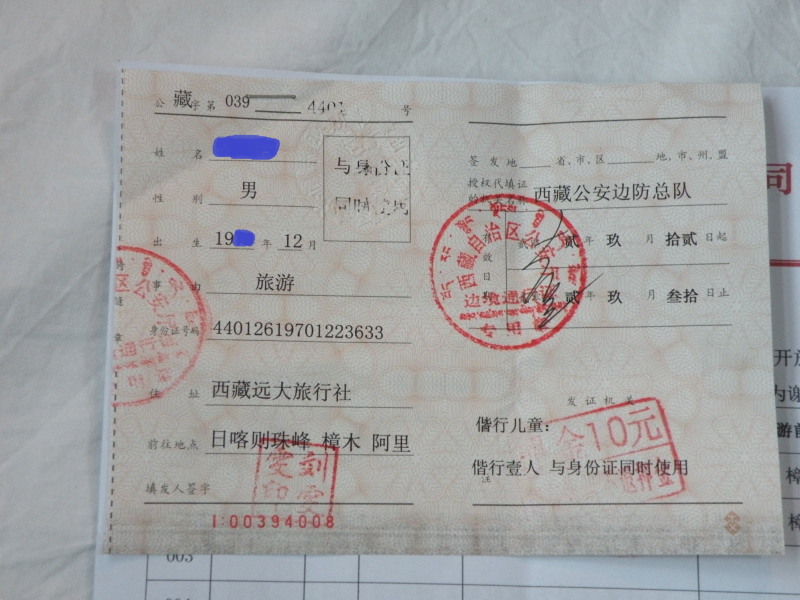 公 藏 字 第 039 4401 号
姓 名
与身份证
同时使用
性 别 男
出 生 19 年 12 月
事 由 旅游
身份证号码 44012619701223633
住 址 西藏远大旅行社
前往地点 日喀则珠峰 樟木 阿里
填发人签字
刘雯
雯印
1:00394008
签 发 地 省、市、区 地、市、州、盟
授权代填证
西藏公安边防总队
有效日期
贰 年 玖 月 拾贰 日起
贰 年 玖 月 叁拾 日止
西藏自治区公安
专用
发 证 机 关
偕行儿童:
金10元
偕行壹人 与身份证同时使用
注
司
开放
游前
樟
003